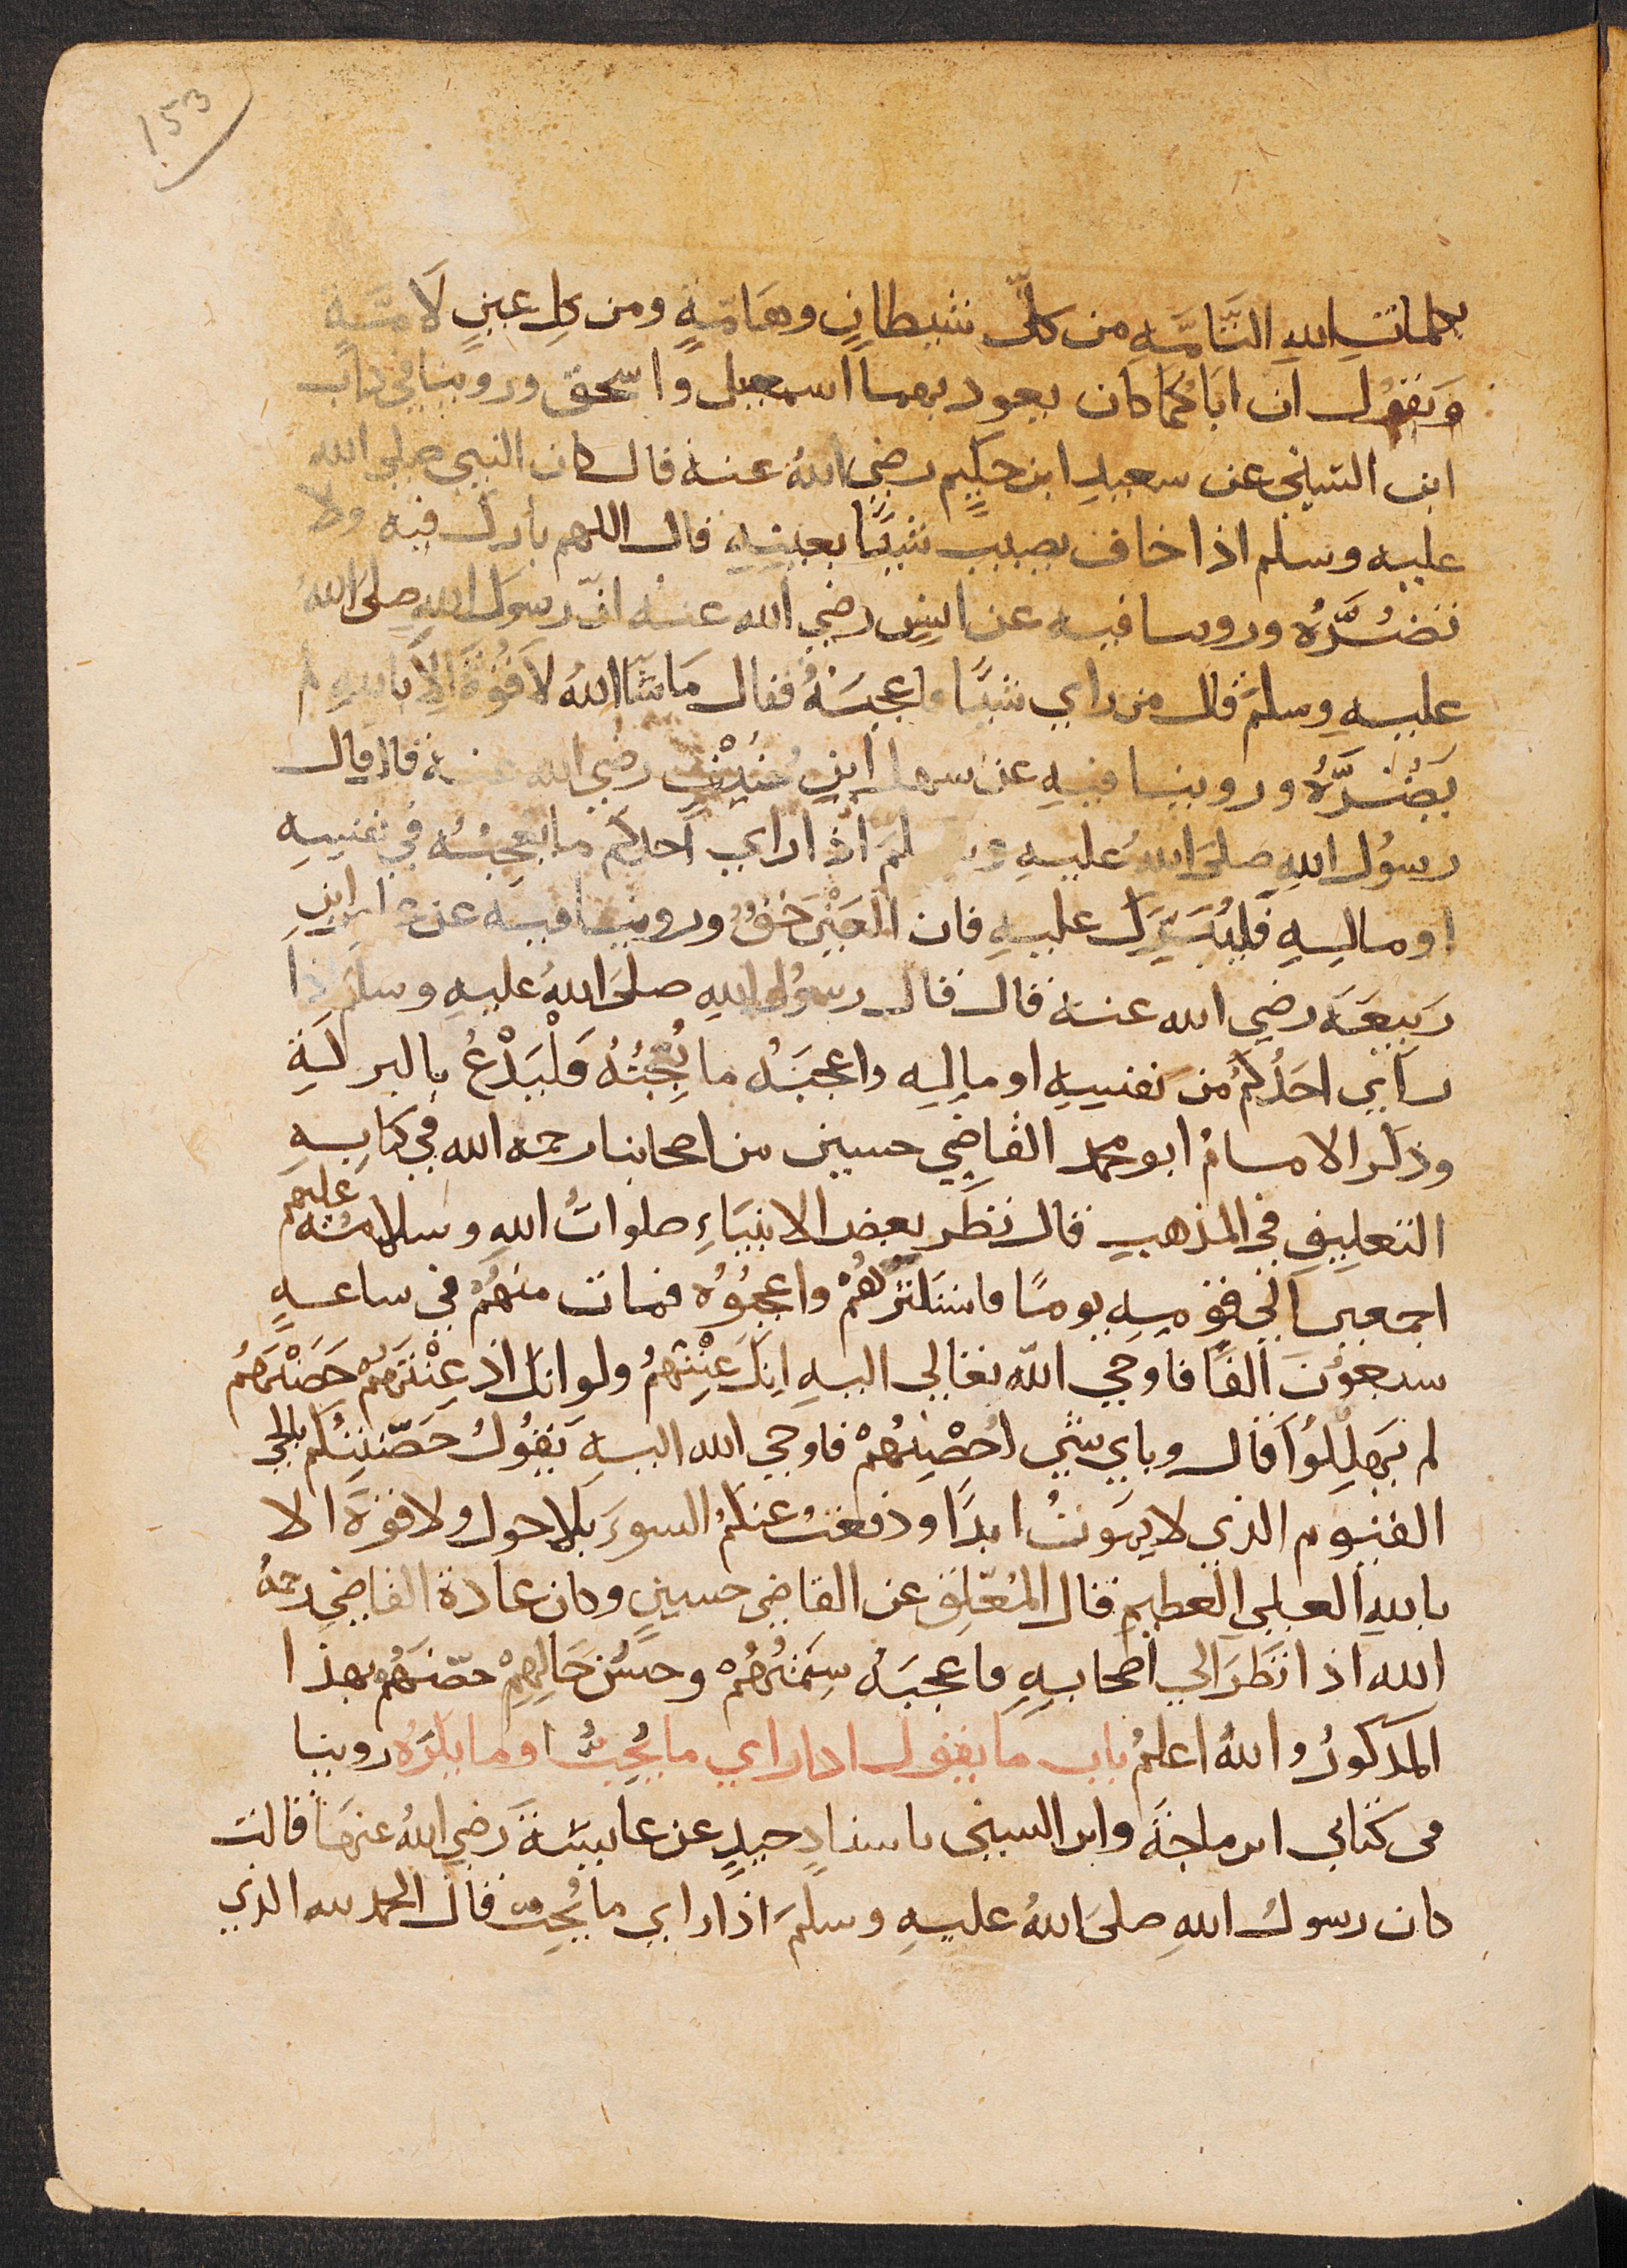 153
بكلماتِ اللهِ التَّامَّهِ من كلِّ شيطانٍ وهَامّةٍ ومن كلِ عينٍ لَامَّةٍ
وَيَقوُل ان ابَاكُما كان يعوذ بهما اسمعيل واسحق وروينا في كتاب
ابن السني عن سعيدِ ابن حَكِيم رضي اللهُ عنه قال كان النبي صلى الله
عليه وسلم اذا خاف يصيب شيئًا بعينِهِ قال اللهم بارك فيه ولا
تضُرَّهُ وروينا فيه عن انسٍ رضي الله عنه انّ رسول اللهِ صلى اللهُ
عليهِ وسلمَ قال من راي شيئًا فاعجبَهُ فقال مَا شَآ اللهُ لَا قُوَّةَ اِلَّا باللهِ لم
يَضُرَّهُ وروينا فيهِ عن سهل ابنِ حُنَيْفٍ رضي الله عنه قال قال
رسُول اللهِ صلى اللهُ عليهِ و لم اذا راي احدكم ما يعجِبُهُ في نفسِهِ
او مالِهِ فَليُبَرِّك عليهِ فان العَيْنَ حَقٌ وروينا فيه عن عامر ابنِ
رَبيعَهَ رضي الله عنه قال قال رسوُل اللهِ صلى اللهُ عليهِ وسلم ذا
رآي احَدُكُم من نفسِهِ او مالِهِ واعجبَهُ ما يُعجِبُهُ فَلْيَدْعُ بالبركةِ
وذكر الامامُ ابو محمد القاضي حسين من اصحابنا رحمه الله في كتابِهِ
التعليقِ في المذهبِ قال نظَر بعض الانبيَاءِ صلواتُ اللهِ وسلامُهُ عليهم
اجمعين الي قومِهِ يومًا فاستكثرَهُمْ واعجبُوُه فمات منهُم في ساعهٍ
سبعوُنَ الفًا فاوحي الله تعالي اليهِ اِنك عِنْتَهُمْ ولو انك اذ عِنْتَهُمْ حَصَّنْتَهُم
لم يَهلِكُوا قال وباي شي اُحَصِّنُهُمْ فاوحي الله اليهِ تَقوُلُ حَصَّنتُكُم بالحي
القيوم الذي لا يموتُ ابدًا ودفعتُ عنكُمُ السوءَ بلا حول ولا قوةَ الا
باللهِ العلي العظيمِ قال المُعَلِّقُ عن القاضي حسينٍ وكان عادة القاضي رحمهُ
الله اذا نَظَرَ الي اصحابِهِ فاعجبَهُ سِمَتُهُمْ وحسْنُ حَالِهِمْ حصّنَهُم بهذا
المذكورُ واللهُ اعلمُ باب ما يقول اذا راي ما يُحِبُّ او ما يكرَهُ روينا
في كتابي ابن ماجةَ وابن السني باسنادٍ جيدٍ عن عايشةَ رضي اللهُ عنهَا قالت
كان رسولُ اللهِ صلىَ اللهُ عليهِ وسلمَ اذا راي ما يُحِبُّ قال الحمد لله الذي